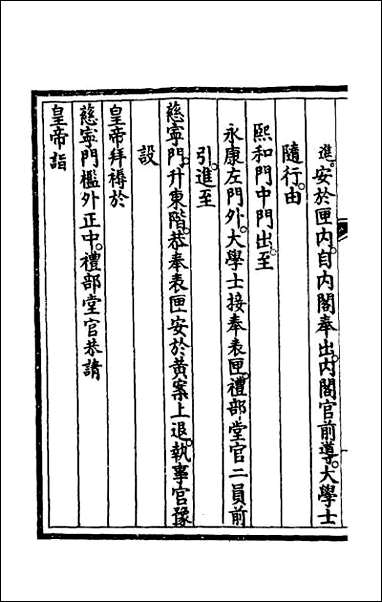 進。安於匣內。自內閣奉出。內閣官前導。大學士
隨行。由
熙和門中門出。至
永康左門外。大學士接奉表匣。禮部堂官二員前
引。進至
慈寧門。升東階。恭奉表匣安於黃案上。退。執事官豫
設
皇帝拜褥於
慈寧門檻外正中。禮部堂官恭請
皇帝詣